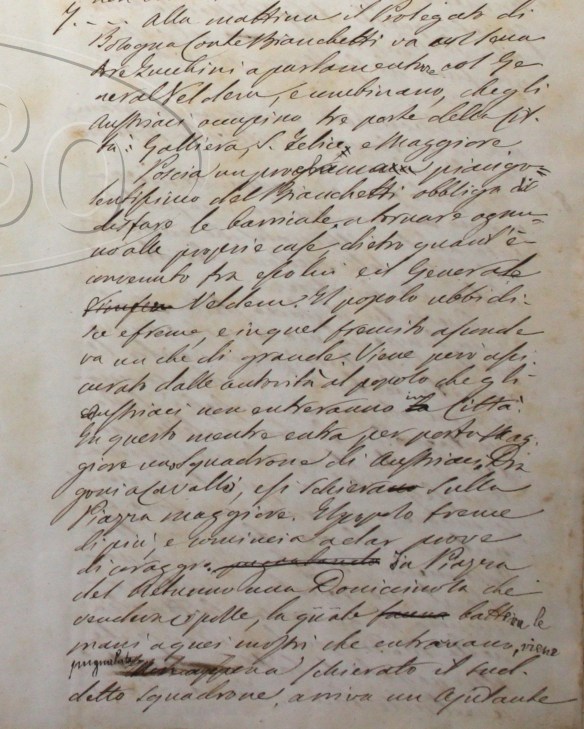 7. - - - Alla mattina il Prolegato di
Bologna Conte Bianchetti va col Sena
tore Zucchini a parlamentare col Ge
neral Velden, e combinano, che gli
Austriaci occupino tre porte della Cit-
tà: Galliera, S. Felice, e Maggiore
Poscia un proclama piangio=
lentissimo del Bianchetti obbliga di
disfare le barricate, a tornare ognu-
no alle proprie case, dietro quant'è
convenuto tra esso lui e il Generale
Velden. Il popolo ubbidi-
sce e freme, e in quel fremito asconde
va un che di grande. Viene però assi
curato dalle autorità al popolo che gli
Austriaci non entreranno in Città.
In questo mentre entra per porta Mag-
giore uno Squadrone di Austriaci Dra
goni a Cavallo, e si schiera sulla
Piazza maggiore. Il popolo freme
di più, e comincia a dar prove
di coraggio. In Piazza
del Nettunno una Donicciuola che
vendeva, la quale batteva le
mani a quei mostri che entravano, viene
pugnalata
appena schierato il sud-
detto Squadrone, arriva un Ajutante